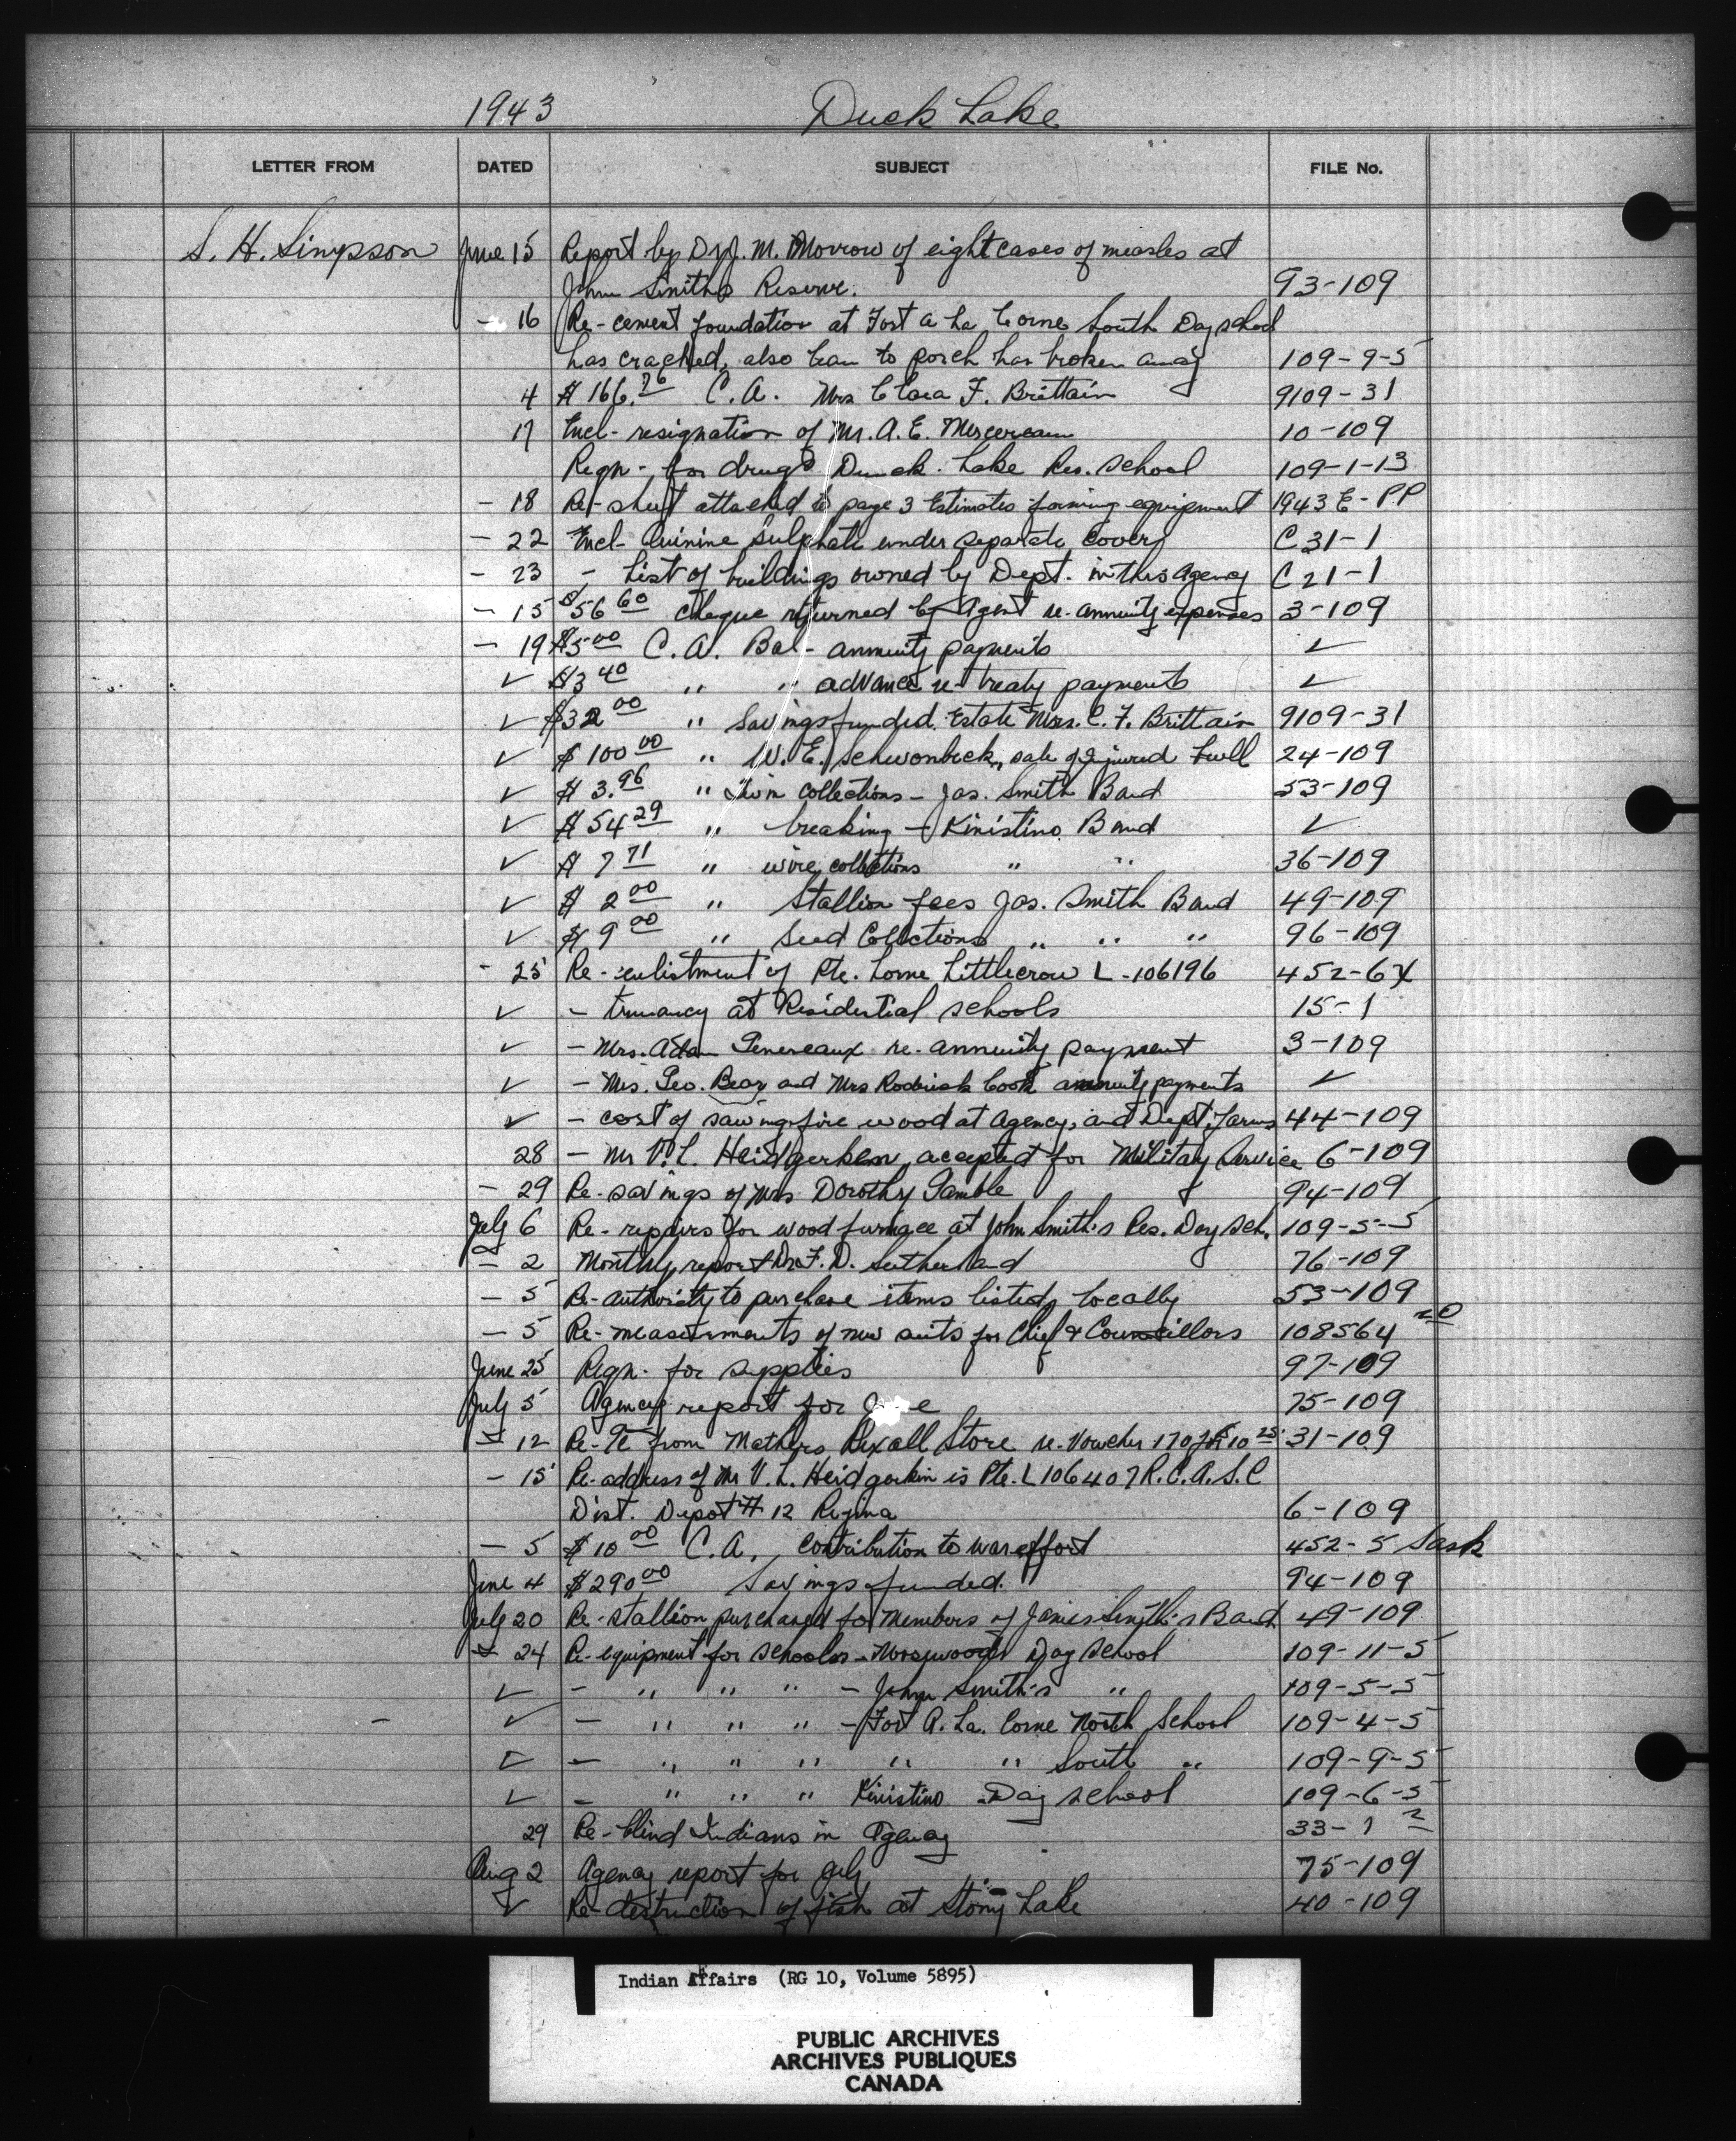 1943 Duck Lake
LETTER FROM DATED SUBJECT FILE No.
S. H. Simpson June 15 Report by Dr. J. M. Morrow of eight cases of measles at
John Smith's Reserve. 93-109
- 16 Re- cement foundation at Fort a La Corne South Day school
has cracked, also to porch has broken away 109-9-5
4 $166.76 C.A. Mrs Clara F. Brittain 9109-31
17 Encl- resignation of Mr. A. E. Mercereau 10-109
Reqn- for drugs Duck Lake Res. School 109-1-13
- 18 Re- sheet attached to page 3 Estimates farming equipment 1943 E-PP
- 22 Encl- Quinine Sulphate under separate cover C 31-1
- 23 - List of buildings owned by Dept. in this Agency C 21-1
- 15 $56 60 cheque returned by Agent re- annuity expenses 3-109
- 19 $5 00 C.A. Bal- annuity payments ✓
✓ $3 40 " " advance re- treaty payments ✓
✓ $32 00 " Savings funded Estate Mrs. C. F. Brittain 9109-31
✓ $100 00 " W. E. Schwonbeck, sale of injured bull 24-109
✓ $3.96 " Twine collections - Jas. Smith Band 53-109
✓ $54 29 " breaking - Kinistino Band ✓
✓ $7 71 " wire collections " " 36-109
✓ $2 00 " Stallion fees Jas. Smith Band 49-109
✓ $9 00 " Seed Collections " " " 96-109
- 25 Re- enlistment of Pte. Lorne Littlecrow L-106196 452-6X
✓ - truancy at Residential schools 15-1
✓ - Mrs. Adam Genereaux re- annuity payment 3-109
✓ - Mrs. Geo. Bear and Mrs Roderick Cook annuity payments ✓
✓ - cost of sawing fire wood at Agency, and Dept. Farms 44-109
28 - Mr V. L. Heidgerken, accepted for Military Service 6-109
- 29 Re- savings of Mrs Dorothy Gamble 94-109
July 6 Re- repairs for wood furnace at John Smith's Res. Day Sch. 109-5-5
- 2 Monthly report Dr. F. D. Sutherland 76-109
- 5 Re- authority to purchase items listed, locally 53-109
- 5 Re- measurements of new suits for Chief & Councillors 108564
June 25 Reqn- for supplies 97-109
July 5 Agency report for 75-109
- 12 Re- from Mathers Rexall Store re- Voucher 170 for 10 25 31-109
- 15 Re- address of Mr V. L. Heidgerkin is Pte. L 106407 R.C.A.S.C
Dist. Depot # 12 Regina 6-109
- 5 $10 00 C.A. contribution to war effort 452-5 Sask
June 4 $290 00 Savings funded. 94-109
July 20 Re- stallion purchased for members of James Smith's Band 49-109
- 24 Re- equipment for schools - Day School 109-11-5
✓ - " " " - John Smith's " 109-5-5
✓ - " " " - Fort A. La. Corne North School 109-4-5
✓ - " " " " " South " 109-9-5
✓ - " " " Kinistino Day school 109-6-5
29 Re- blind Indians in Agency 33-1 2
Aug 2 Agency report for July 75-109
✓ Re- destruction of fish at Stony Lake 40-109
Indian Affairs (RG 10, Volume 5895)
PUBLIC ARCHIVES
ARCHIVES PUBLIQUES
CANADA